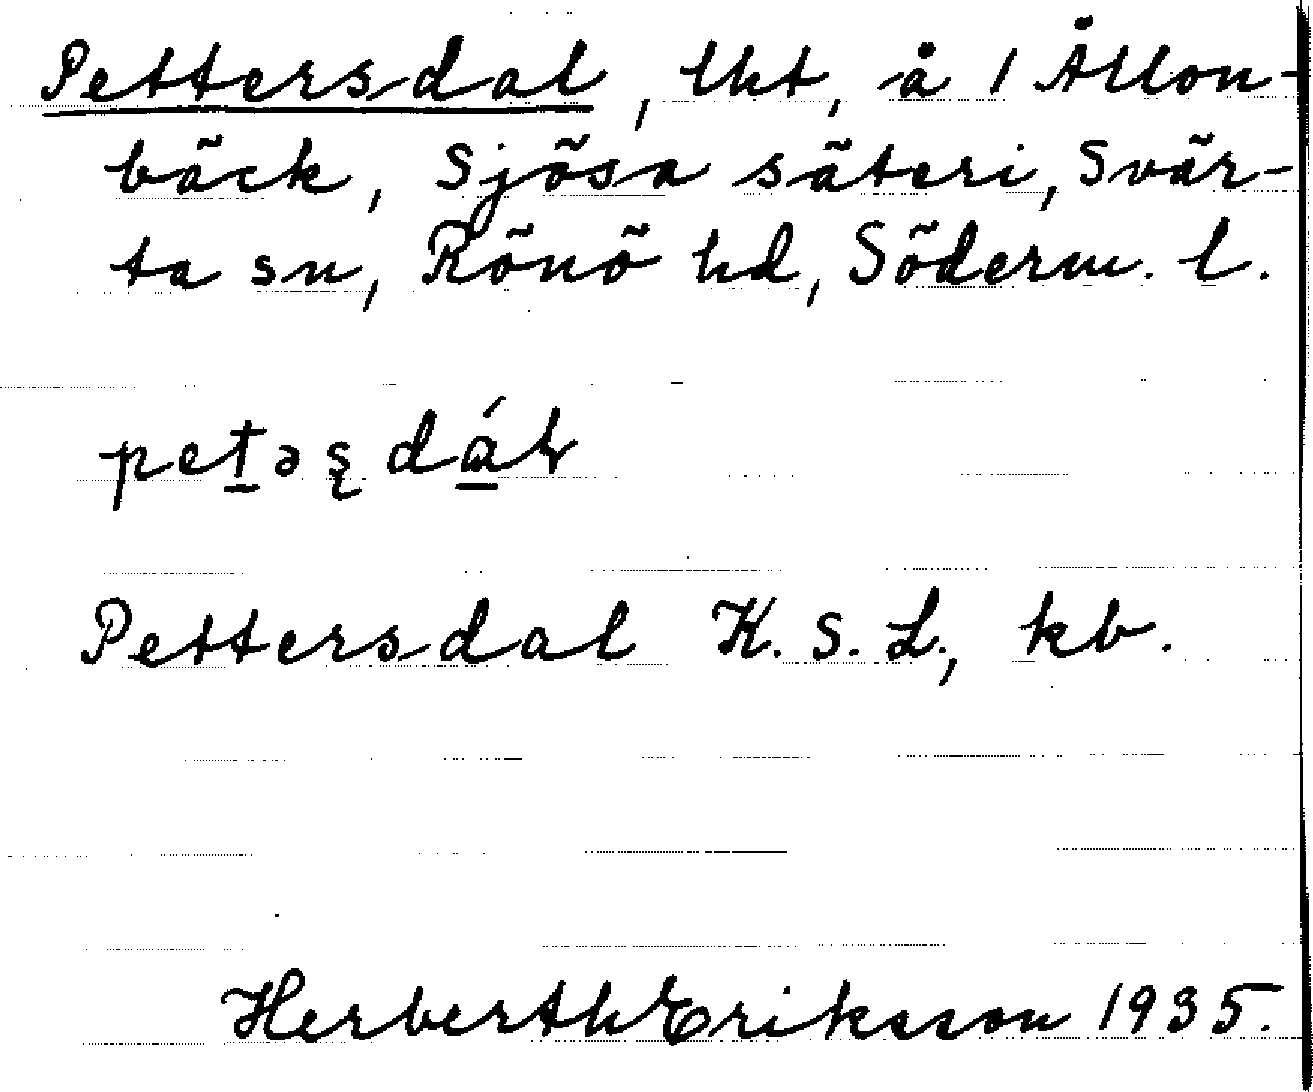 Pettersdal, lht, å 1 Ållon-
bäck, Sjösa säteri, Svär-
ta sn, Rönö hd, Söderm. l.
Pettersdal K. S. L., kb.
Herberth Eriksson 1935.